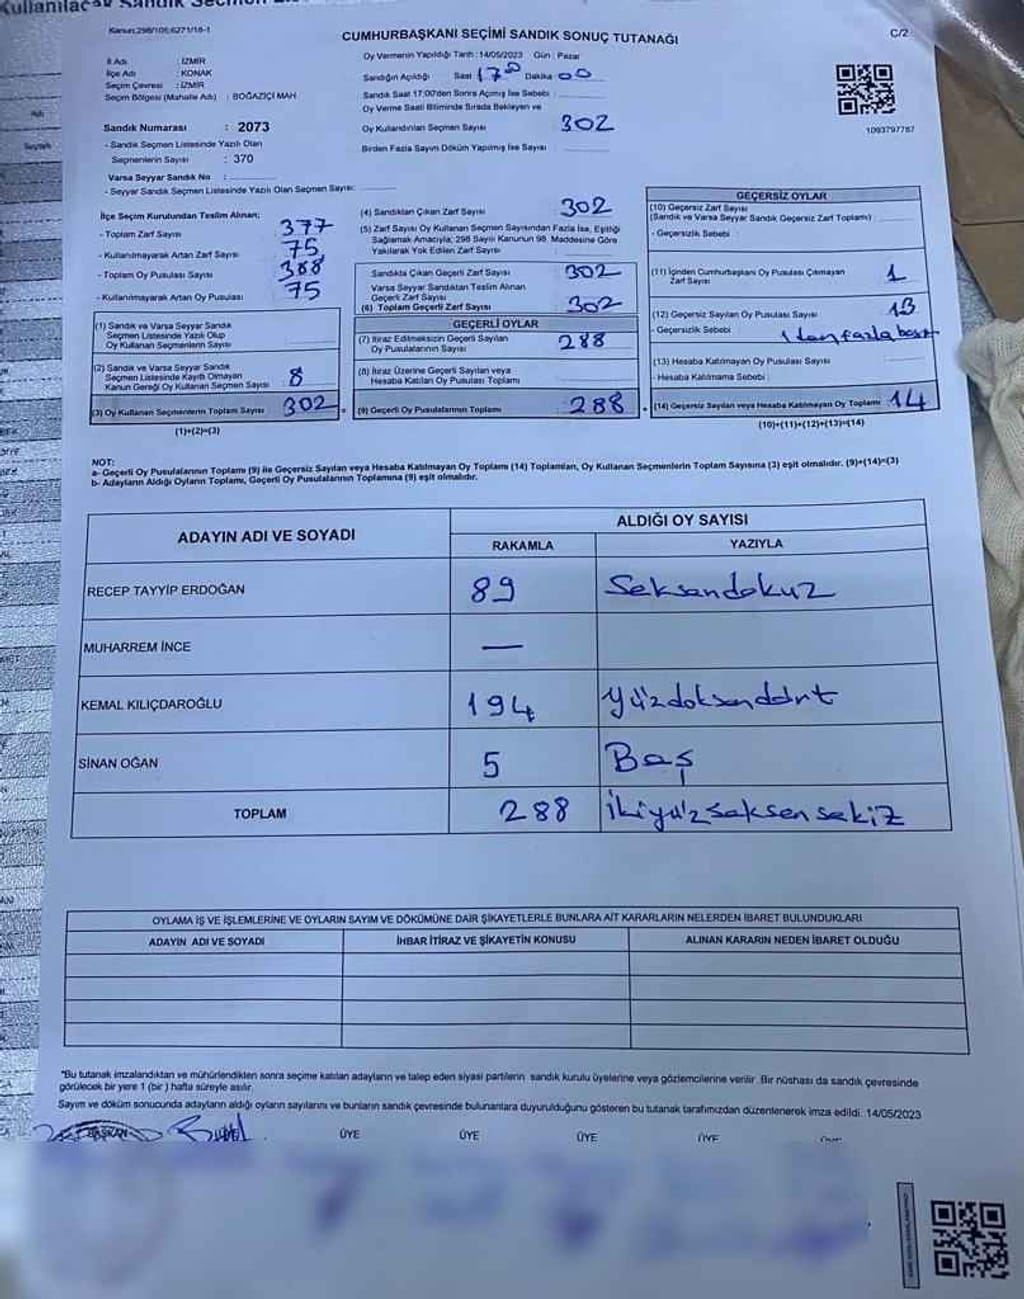 CUMHURBAŞKANI SEÇİMİ SANDIK SONUÇ TUTANAĞI
C/2
İl Adı : İZMİR
İlçe Adı : KONAK
Seçim Çevresi : İZMİR
Seçim Bölgesi (Mahalle Adı) : BOĞAZİÇİ MAH
Sandık Numarası : 2073
- Sandık Seçmen Listesinde Yazılı Olan
Seçmenlerin Sayısı : 370
Varsa Seyyar Sandık No :
- Seyyar Sandık Seçmen Listesinde Yazılı Olan Seçmen Sayısı:
Oy Vermenin Yapıldığı Tarih : 14/05/2023 Gün : Pazar
Sandığın Açıldığı Saat 17:00 Dakika 00
Sandık Saat 17:00'den Sonra Açılmış İse Sebebi :
Oy Verme Saati Bitiminde Sırada Bekleyen ve
Oy Kullandırılan Seçmen Sayısı 302
Birden Fazla Sayım Döküm Yapılmış İse Sayısı
1093797787
İlçe Seçim Kurulundan Teslim Alınan;
- Toplam Zarf Sayısı 377
- Kullanılmayarak Artan Zarf Sayısı 75
- Toplam Oy Pusulası Sayısı 388
- Kullanılmayarak Artan Oy Pusulası 75
(1) Sandık ve Varsa Seyyar Sandık
Seçmen Listesinde Yazılı Olup
Oy Kullanan Seçmenlerin Sayısı
(2) Sandık ve Varsa Seyyar Sandık
Seçmen Listesinde Kayıtlı Olmayan
Kanun Gereği Oy Kullanan Seçmen Sayısı 8
(3) Oy Kullanan Seçmenlerin Toplam Sayısı 302
(1)+(2)=(3)
(4) Sandıktan Çıkan Zarf Sayısı 302
(5) Zarf Sayısı Oy Kullanan Seçmen Sayısından Fazla İse, Eşitliği
Sağlamak Amacıyla; 298 Sayılı Kanunun 98. Maddesine Göre
Yakılarak Yok Edilen Zarf Sayısı
Sandıkta Çıkan Geçerli Zarf Sayısı 302
Varsa Seyyar Sandıktan Teslim Alınan
Geçerli Zarf Sayısı
(6) Toplam Geçerli Zarf Sayısı 302
GEÇERLİ OYLAR
(7) İtiraz Edilmeksizin Geçerli Sayılan
Oy Pusulalarının Sayısı 288
(8) İtiraz Üzerine Geçerli Sayılan veya
Hesaba Katılan Oy Pusulası Toplamı
(9) Geçerli Oy Pusulalarının Toplamı 288
GEÇERSİZ OYLAR
(10) Geçersiz Zarf Sayısı
(Sandık ve Varsa Seyyar Sandık Geçersiz Zarf Toplamı)
- Geçersizlik Sebebi :
(11) İçinden Cumhurbaşkanı Oy Pusulası Çıkmayan
Zarf Sayısı 1
(12) Geçersiz Sayılan Oy Pusulası Sayısı 13
- Geçersizlik Sebebi 1 den fazla
(13) Hesaba Katılmayan Oy Pusulası Sayısı
- Hesaba Katılmama Sebebi :
(14) Geçersiz Sayılan veya Hesaba Katılmayan Oy Toplamı 14
(10)+(11)+(12)+(13)=(14)
NOT:
a- Geçerli Oy Pusulalarının Toplamı (9) ile Geçersiz Sayılan veya Hesaba Katılmayan Oy Toplamı (14) Toplamları, Oy Kullanan Seçmenlerin Toplam Sayısına (3) eşit olmalıdır. (9)+(14)=(3)
b- Adayların Aldığı Oyların Toplamı, Geçerli Oy Pusulalarının Toplamına (9) eşit olmalıdır.
ADAYIN ADI VE SOYADI
ALDIĞI OY SAYISI
RAKAMLA YAZIYLA
RECEP TAYYİP ERDOĞAN 89 Seksandokuz
MUHARREM İNCE —
KEMAL KILIÇDAROĞLU 194 Yüzdoksanddrt
SİNAN OĞAN 5 Baş
TOPLAM 288 İkiyüzsaksensekiz
OYLAMA İŞ VE İŞLEMLERİNE VE OYLARIN SAYIM VE DÖKÜMÜNE DAİR ŞİKAYETLERLE BUNLARA AİT KARARLARIN NELERDEN İBARET BULUNDUKLARI
ADAYIN ADI VE SOYADI İHBAR İTİRAZ VE ŞİKAYETİN KONUSU ALINAN KARARIN NEDEN İBARET OLDUĞU
*Bu tutanak imzalandıktan ve mühürlendikten sonra seçime katılan adayların ve talep eden siyasi partilerin sandık kurulu üyelerine veya gözlemcilerine verilir. Bir nüshası da sandık çevresinde
görülecek bir yere 1 (bir) hafta süreyle asılır.
Sayım ve döküm sonucunda adayların aldığı oyların sayılarını ve bunların sandık çevresinde bulunanlara duyurulduğunu gösteren bu tutanak tarafımızdan düzenlenerek imza edildi. 14/05/2023
BAŞKAN ÜYE ÜYE ÜYE ÜYE